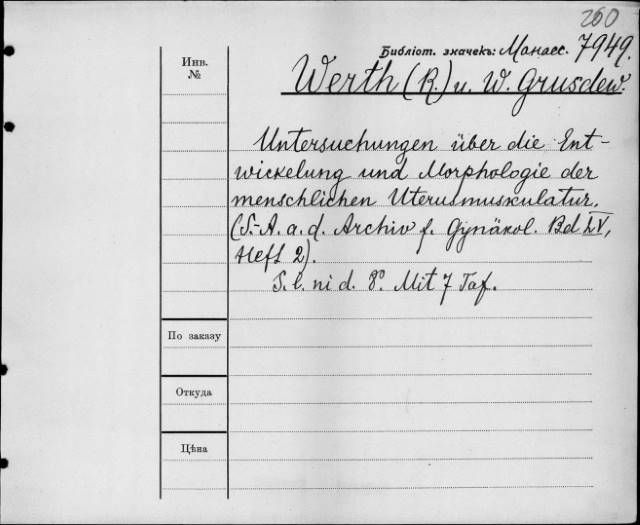 260
Библіот. значекъ: Манасс. 7949.
Инв.
№
Werth (R.) u. W. Grusdew.
Untersuchungen über die Ent-
wickelung und Morphologie der
menschlichen Uterusmuskulatur.
(S.-A. a. d. Archiv f. Gynäkol. Bd LV,
Heft 2).
S. l. ni d. 8º. Mit 7 Taf.
По заказу
Откуда
Цѣна